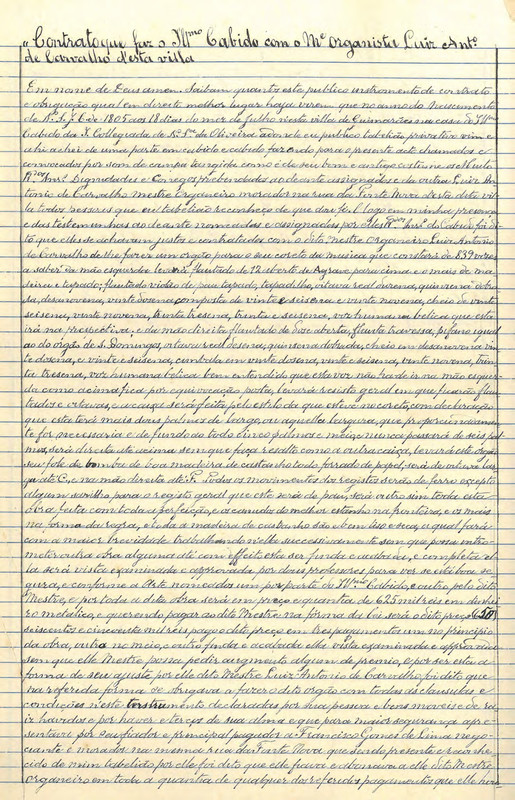 "Contrato que faz o Ill.mo Cabido com o M.e organista Luiz Ant.o
de Carvalho d'esta villa
Em nome de Deus amen. Saibam quantos este publico instromento de contrato
e obrigação qual em direito melhor lugar haja virem que no anno do Nascimento
de N. S. J. C. de 1805 aos 18 dias do mez de Julho n'esta villa de Guimarães na casa do Ill.mo
Cabido da I. Collegiada de N. Sr.a da Oliveira aonde eu publico tabelião privativo vim e
ahi achei de uma parte em cabido e cabido fazendo para o presente acto chamados e
convocados por som de campa tangida como é de seu bem e antigo custume os
R.dos Snrs. Dignidades e Conegos prebendados ao deante assignados e da outra Luiz An-
tonio de Carvalho mestre organeiro morador na rua da Fonte Nova desta dita vil-
la todos pessoas que eu tabelião reconheço de que dou fé. E logo em minha presença
e das testemunhas ao deante nomeadas e assignadas por elles R.dos Snrs. do Cabido foi di-
to que elles se achavam justos e contratados com o dito mestre organeiro Luiz Antonio
de Carvalho de lhe fazer um orgão para o seu coreto da musica que constará de 839 vozes
a saber da mão esquerda levará flautado de 12 aberto de Agrave para cima e o mais de ma-
deira e tapado; flautado violão de pau tapado, tapadilho, oitava real, quinzena dobra-
da, desanovena, vinte dozena composta de vinte e seisena e vinte novena, cheio de vinte
seisena, vinte novena, trinta tresena, trinta e seisena, voz humana belica que esta
irá na prespectiva; e da mão direita flautado de doze aberto, flauta travessa, pifano igual
ao do orgão de S. Domingos, oitava real, dosena, quinsena dobrada, cheio em desanovena vin-
te dozena, e vinte e seisena, cimbala em vinte dozena, vinte seisena, vinte novena, trin-
ta tresena, voz humana belica bem entendido que esta voz não ha de ir na mão esquer-
da como acima fica por equivocação posta, levará resisto geral em que fusarão flau-
tados e oitavas, e a caixa será feita pelo risto da que esteve no coreto, com declaração
que esta terá mais dous palmos de largo, ou aquelles largura, que proporcionamen-
te for precessaria e de fundo ao todo cinco palmos e meio, e nunca passará de seis pal-
mos, será direita até cima sem que faça resalto como a outra caixa, levará este orgão
seu fole de bomba de boa madeira de castanho todo forrado de papel, será de oitava lar-
ga até C, e na mão direita até F. Todos os movimentos dos registos serão de ferro excepto
algum sarilho para o registo geral que este será de pau, será outro sim toda esta
obra feita com toda a perfeição, e os canudos do melhor estanho na fronteira, e os mais
na forma da rasga, e toda a madeira de castanho são e bem lisa e sêca, a qual fará
com a maior brevidade trabalhando nelle successivamente sem que possa intro-
metter outra obra alguma até com effeito esta ser finda e acabada, e completa el-
la será vista examinada e approvada por dous professores para ver se está boa se-
gura, e conforme a Arte nomeados um por parte do Ill.mo Cabido, e outro pelo dito
Mestre, e por toda a dita obra será em preço e quantia de 625 mil réis em dinhei-
ro metalico, e querendo pagar ao dito Mestre na forma da Lei será o dito preço 650
seiscentos e cincoenta mil réis pago o dito preço em tres pagamentos um no principio
da obra, outro no meio, e outro finda e acabada ella vista examinada e approvada
sem que elle Mestre possa pedir augmento algum de premio. E por ser esta a
forma de seu ajuste por elle dito Mestre Luiz Antonio de Carvalho foi dito que
na referida forma se obrigava a fazer o dito orgão com todas as clausulas e
condições n'este instrumento declaradas por sua pessoa e bens moveis e de ra-
iz havidos e por haver e terços de sua alma e que para maior segurança apre-
sentava por seu fiador e principal pagador a Francisco Gomes de Lima nego-
ciante e morador na mesma rua da Fonte Nova que sendo presente e reconhe-
cido de mim tabelião por elle foi dito que elle fiava e abonava a elle dito Mestre
organeiro em toda a quantia de qualquer dos referidos pagamentos que elle